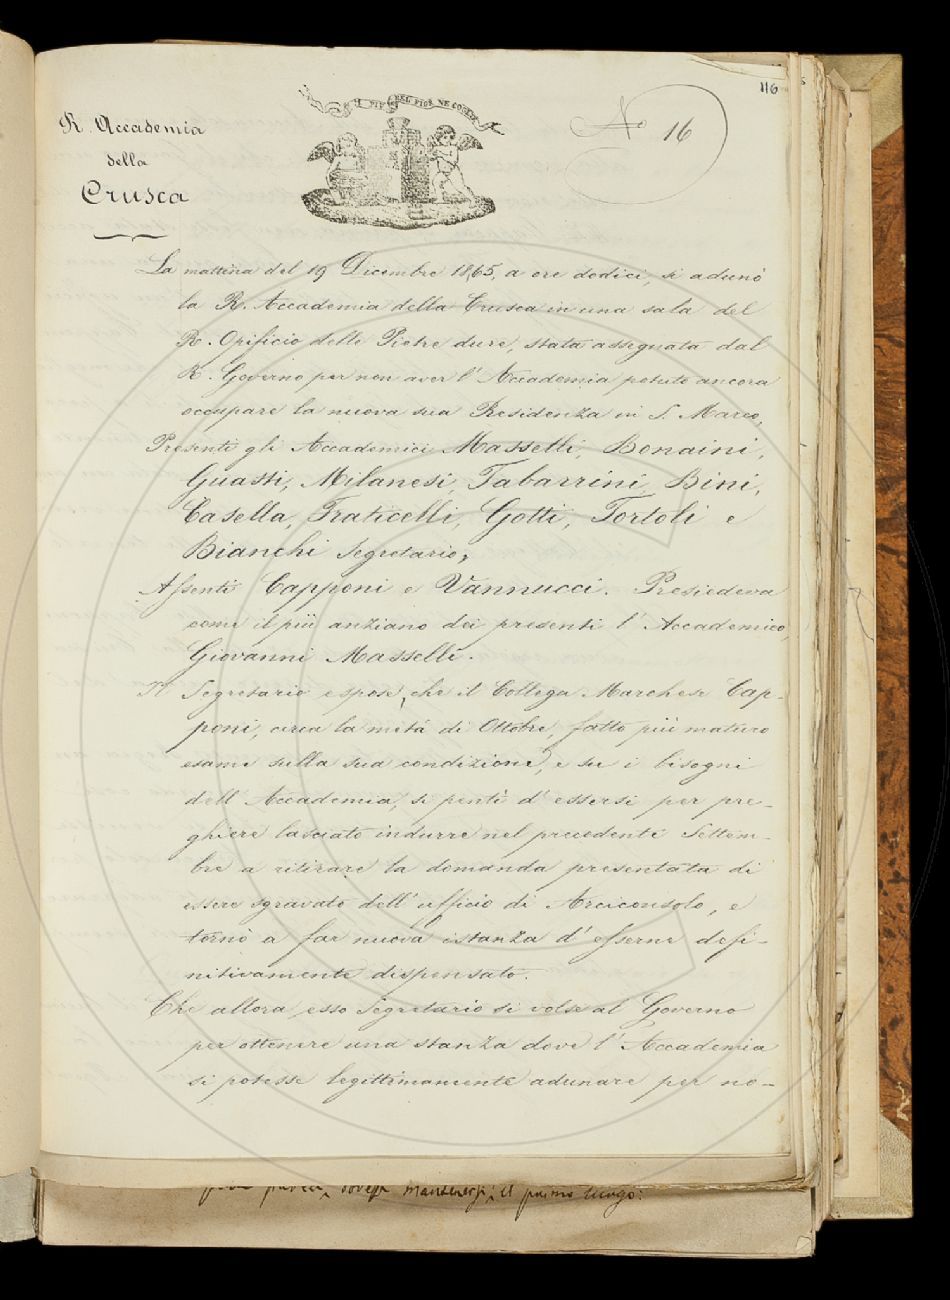 116
R. Accademia
della
Crusca
IL PIÙ BEL FIOR NE COGLIE
No 16
La mattina del 19 Dicembre 1865, a ore dodici, si adunò
la R. Accademia della Crusca in una sala del
R. Opificio delle Pietre dure, stata assegnata dal
R. Governo per non aver l'Accademia potuto ancora
occupare la nuova sua Residenza in S. Marco,
Presenti gli Accademici Masselli, Bonaini,
Guasti, Milanesi, Tabarrini, Bini,
Casella, Fraticelli, Gotti, Tortoli e
Bianchi Segretario;
Assenti Capponi e Vannucci. Presiedeva
come il più anziano dei presenti l'Accademico,
Giovanni Masselli.
Il Segretario espose, che il Collega Marchese Cap-
poni, circa la metà di Ottobre, fatto più maturo
esame sulla sua condizione, e su i bisogni
dell'Accademia, si pentì d'essersi per pre-
ghiere lasciato indurre nel precedente Settem-
bre a ritirare la domanda presentata di
essere sgravato dell'ufficio di Arciconsolo, e
tornò a far nuova istanza d'esserne defi-
nitivamente dispensato.
Che allora esso Segretario si volse al Governo
per ottenere una stanza dove l'Accademia
si potesse legittimamente adunare per no-
dovesse mantenersi il primo luogo: